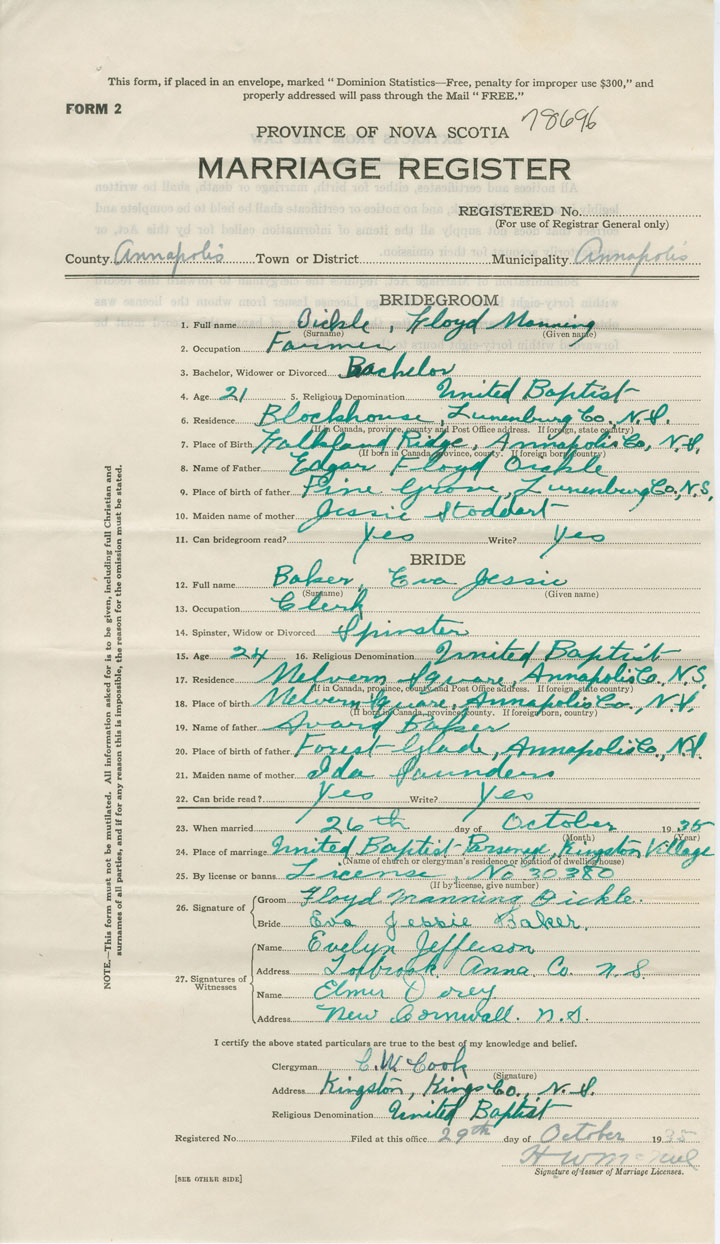 This form, if placed in an envelope, marked "Dominion Statistics—Free, penalty for improper use $300," and
properly addressed will pass through the Mail "FREE."
FORM 2
78696
PROVINCE OF NOVA SCOTIA
MARRIAGE REGISTER
REGISTERED No.
(For use of Registrar General only)
County Annapolis Town or District Municipality Annapolis
BRIDEGROOM
1. Full name Oickle, Floyd Manning
(Surname) (Given name)
2. Occupation Farmer
3. Bachelor, Widower or Divorced Bachelor
4. Age 21 5. Religious Denomination United Baptist
6. Residence Blockhouse, Lunenburg Co., N.S.
(If in Canada, province, county and Post Office address. If foreign, state country)
7. Place of Birth Falkland Ridge, Annapolis Co, N.S.
(If born in Canada, province, county. If foreign born, country)
8. Name of Father Edgar Floyd Oickle
9. Place of birth of father Pine Grove, Lunenburg Co., N.S.
10. Maiden name of mother Jessie Stoddart
11. Can bridegroom read? Yes Write? Yes
BRIDE
12. Full name Baker, Eva Jessie
(Surname) (Given name)
13. Occupation Clerk
14. Spinster, Widow or Divorced Spinster
15. Age 24 16. Religious Denomination United Baptist
17. Residence Melvern Square, Annapolis Co., N.S.
(If in Canada, province, county and Post Office address. If foreign, state country)
18. Place of birth Melvern Square, Annapolis Co., N.S.
(If born in Canada, province, county. If foreign born, country)
19. Name of father Avard Baker
20. Place of birth of father Forest Glade, Annapolis Co., N.S.
21. Maiden name of mother Ida Saunders
22. Can bride read? Yes Write? Yes
23. When married 26th day of October 1935
(Month) (Year)
24. Place of marriage United Baptist Personage, Kingston Village
(Name of church or clergyman's residence or location of dwelling house)
25. By license or banns License, No 30380
(If by license, give number)
26. Signature of
Groom Floyd Manning Oickle.
Bride Eva Jessie Baker.
27. Signatures of Witnesses
Name Evelyn Jefferson
Address Torbrook Anna. Co. N.S.
Name Elmer Dorey
Address New Cornwall. N.S.
I certify the above stated particulars are true to the best of my knowledge and belief.
Clergyman C. W. Cook
(Signature)
Address Kingston, Kings Co., N.S.
Religious Denomination United Baptist
Registered No. Filed at this office 29th day of October 1935
H W McNeil
Signature of Issuer of Marriage Licenses.
[SEE OTHER SIDE]
NOTE.—This form must not be mutilated. All information asked for is to be given, including full Christian and
surnames of all parties, and if for any reason this is impossible, the reason for the omission must be stated.